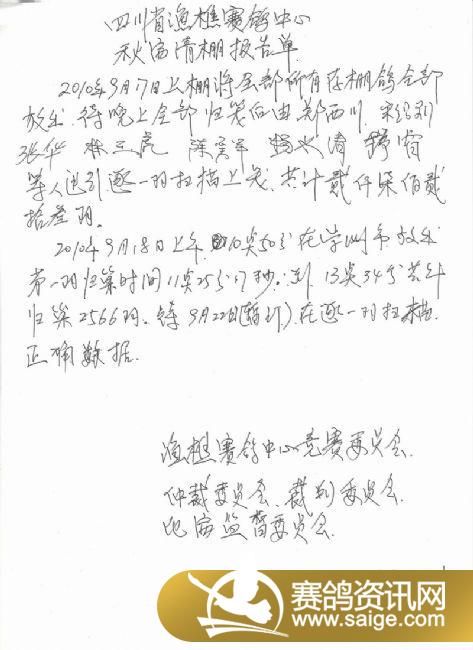 四川省渔樵赛鸽中心
秋海清棚报告单
2010年9月17日上棚将全部所有存棚鸽全部
放出.待晚上全部归巢后由郑西川.
张华 三虎
等人逐一羽扫描上笼.共计贰仟柒佰贰
拾叁羽.
2010年9月18日上午.10点50分在 市放出
第一羽归巢时间11点25分17秒.到13点34分共计
归巢2566羽.待9月22日(暂计)在逐一羽扫描
正确数据.
渔樵赛鸽中心竞赛委员会.
仲裁委员会.裁判委员会.
监督委员会.
赛鸽资讯网
www.saige.com